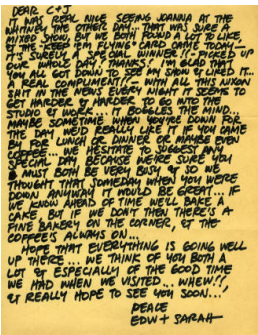 DEAR C + J
IT WAS REAL NICE SEEING JOANNA AT THE
WHITNEY THE OTHER DAY... THAT WAS SURE A
MIXED SHOW, BUT WE BOTH FOUND A LOT TO LIKE
& THE "KEEP 'EM FLYING" CARD CAME TODAY —
IT'S SURELY A SPECIAL WINNER!! — PICKED UP
OUR WHOLE DAY! THANKS! I'M GLAD THAT
YOU ALL GOT DOWN TO SEE MY SHOW & LIKED IT...
A REAL COMPLIMENT! — WITH ALL THIS NIXON
SHIT IN THE NEWS EVERY NIGHT IT SEEMS TO
GET HARDER & HARDER TO GO INTO THE
STUDIO & WORK... IT BOGGLES THE MIND...
MAYBE SOME TIME WHEN YOU'RE DOWN FOR
THE DAY WE'D REALLY LIKE IT IF YOU CAME
BY FOR LUNCH OR DINNER OR MAYBE EVEN
COFFEE... WE HESITATE TO SUGGEST ANY
SPECIAL DAY BECAUSE WE'RE SURE YOU
MUST BOTH BE VERY BUSY & SO WE
THOUGHT THAT SOMEDAY WHEN YOU WERE
DOWN ANYWAY IT WOULD BE GREAT... IF
WE KNOW AHEAD OF TIME WE'LL BAKE A
CAKE, BUT IF WE DON'T THEN THERE'S A
FINE BAKERY ON THE CORNER, & THE
COFFEE'S ALWAYS ON...
HOPE THAT EVERYTHING IS GOING WELL
UP THERE... WE THINK OF YOU BOTH A
LOT & ESPECIALLY OF THE GOOD TIME
WE HAD WHEN WE VISITED... WHEW!!,
& REALLY HOPE TO SEE YOU SOON...!
PEACE
EDW + SARAH